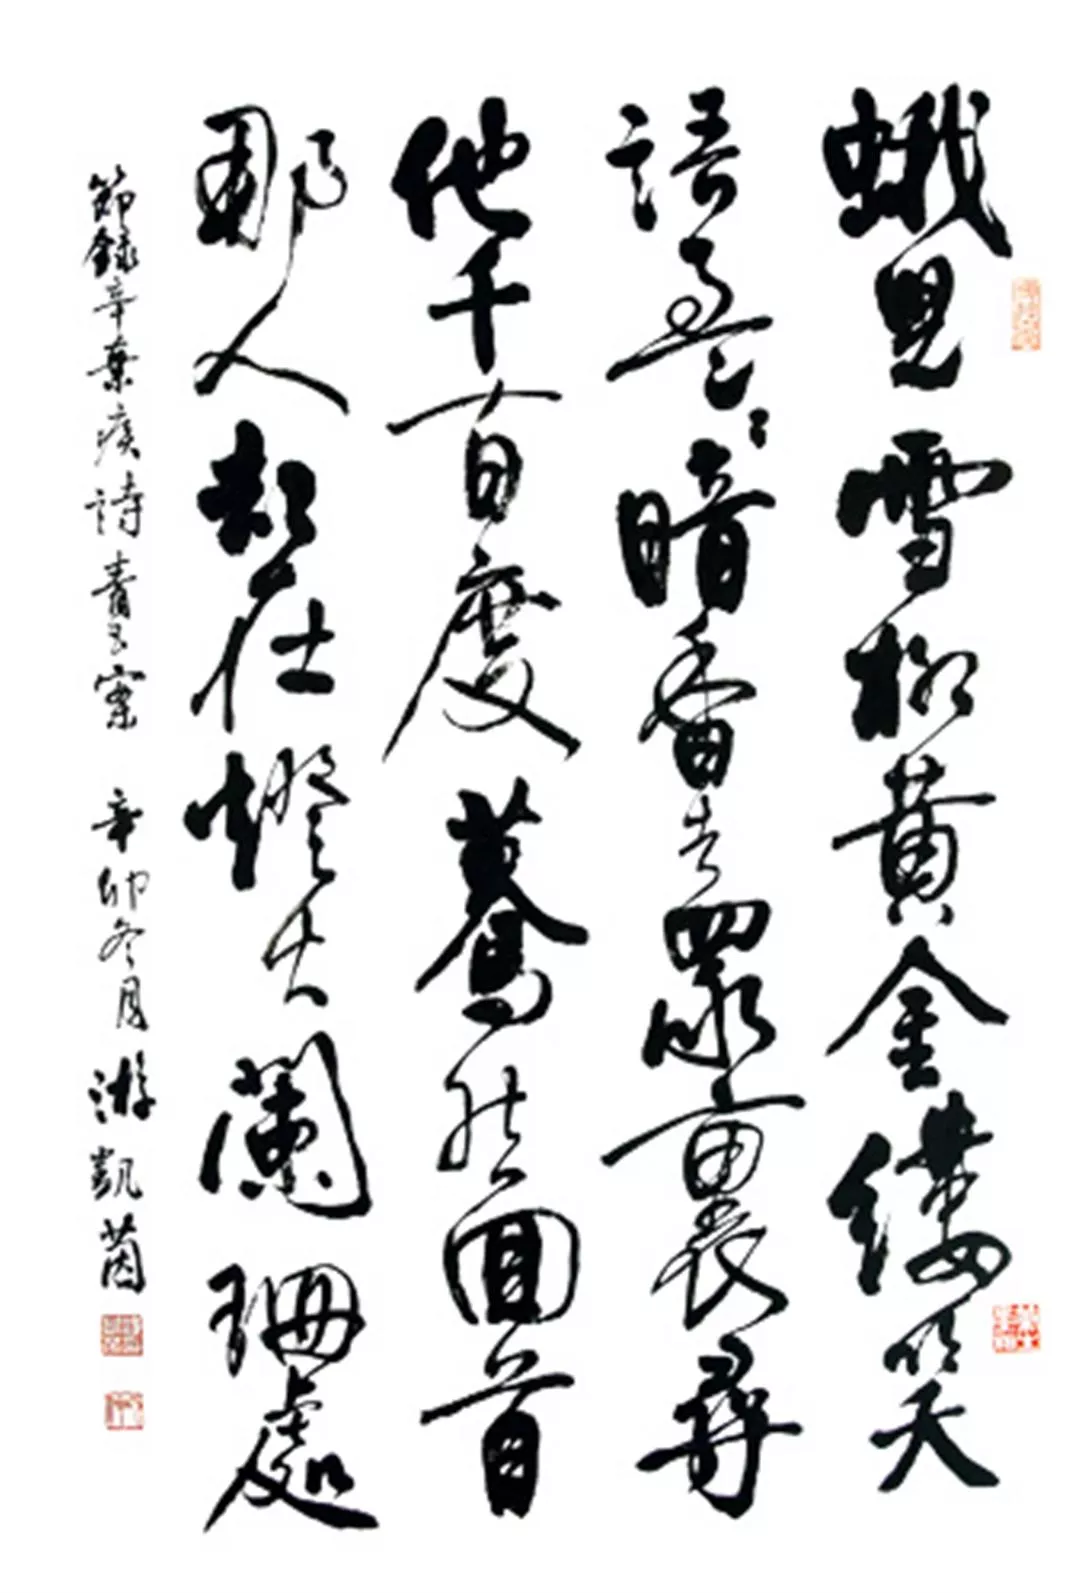 蛾兒雪柳黃金縷笑
語盈〻暗香去眾裏尋
他千百度驀然回首
那人却在燈火闌珊處
節錄辛棄疾詩青玉案 辛卯冬月 游凱茵